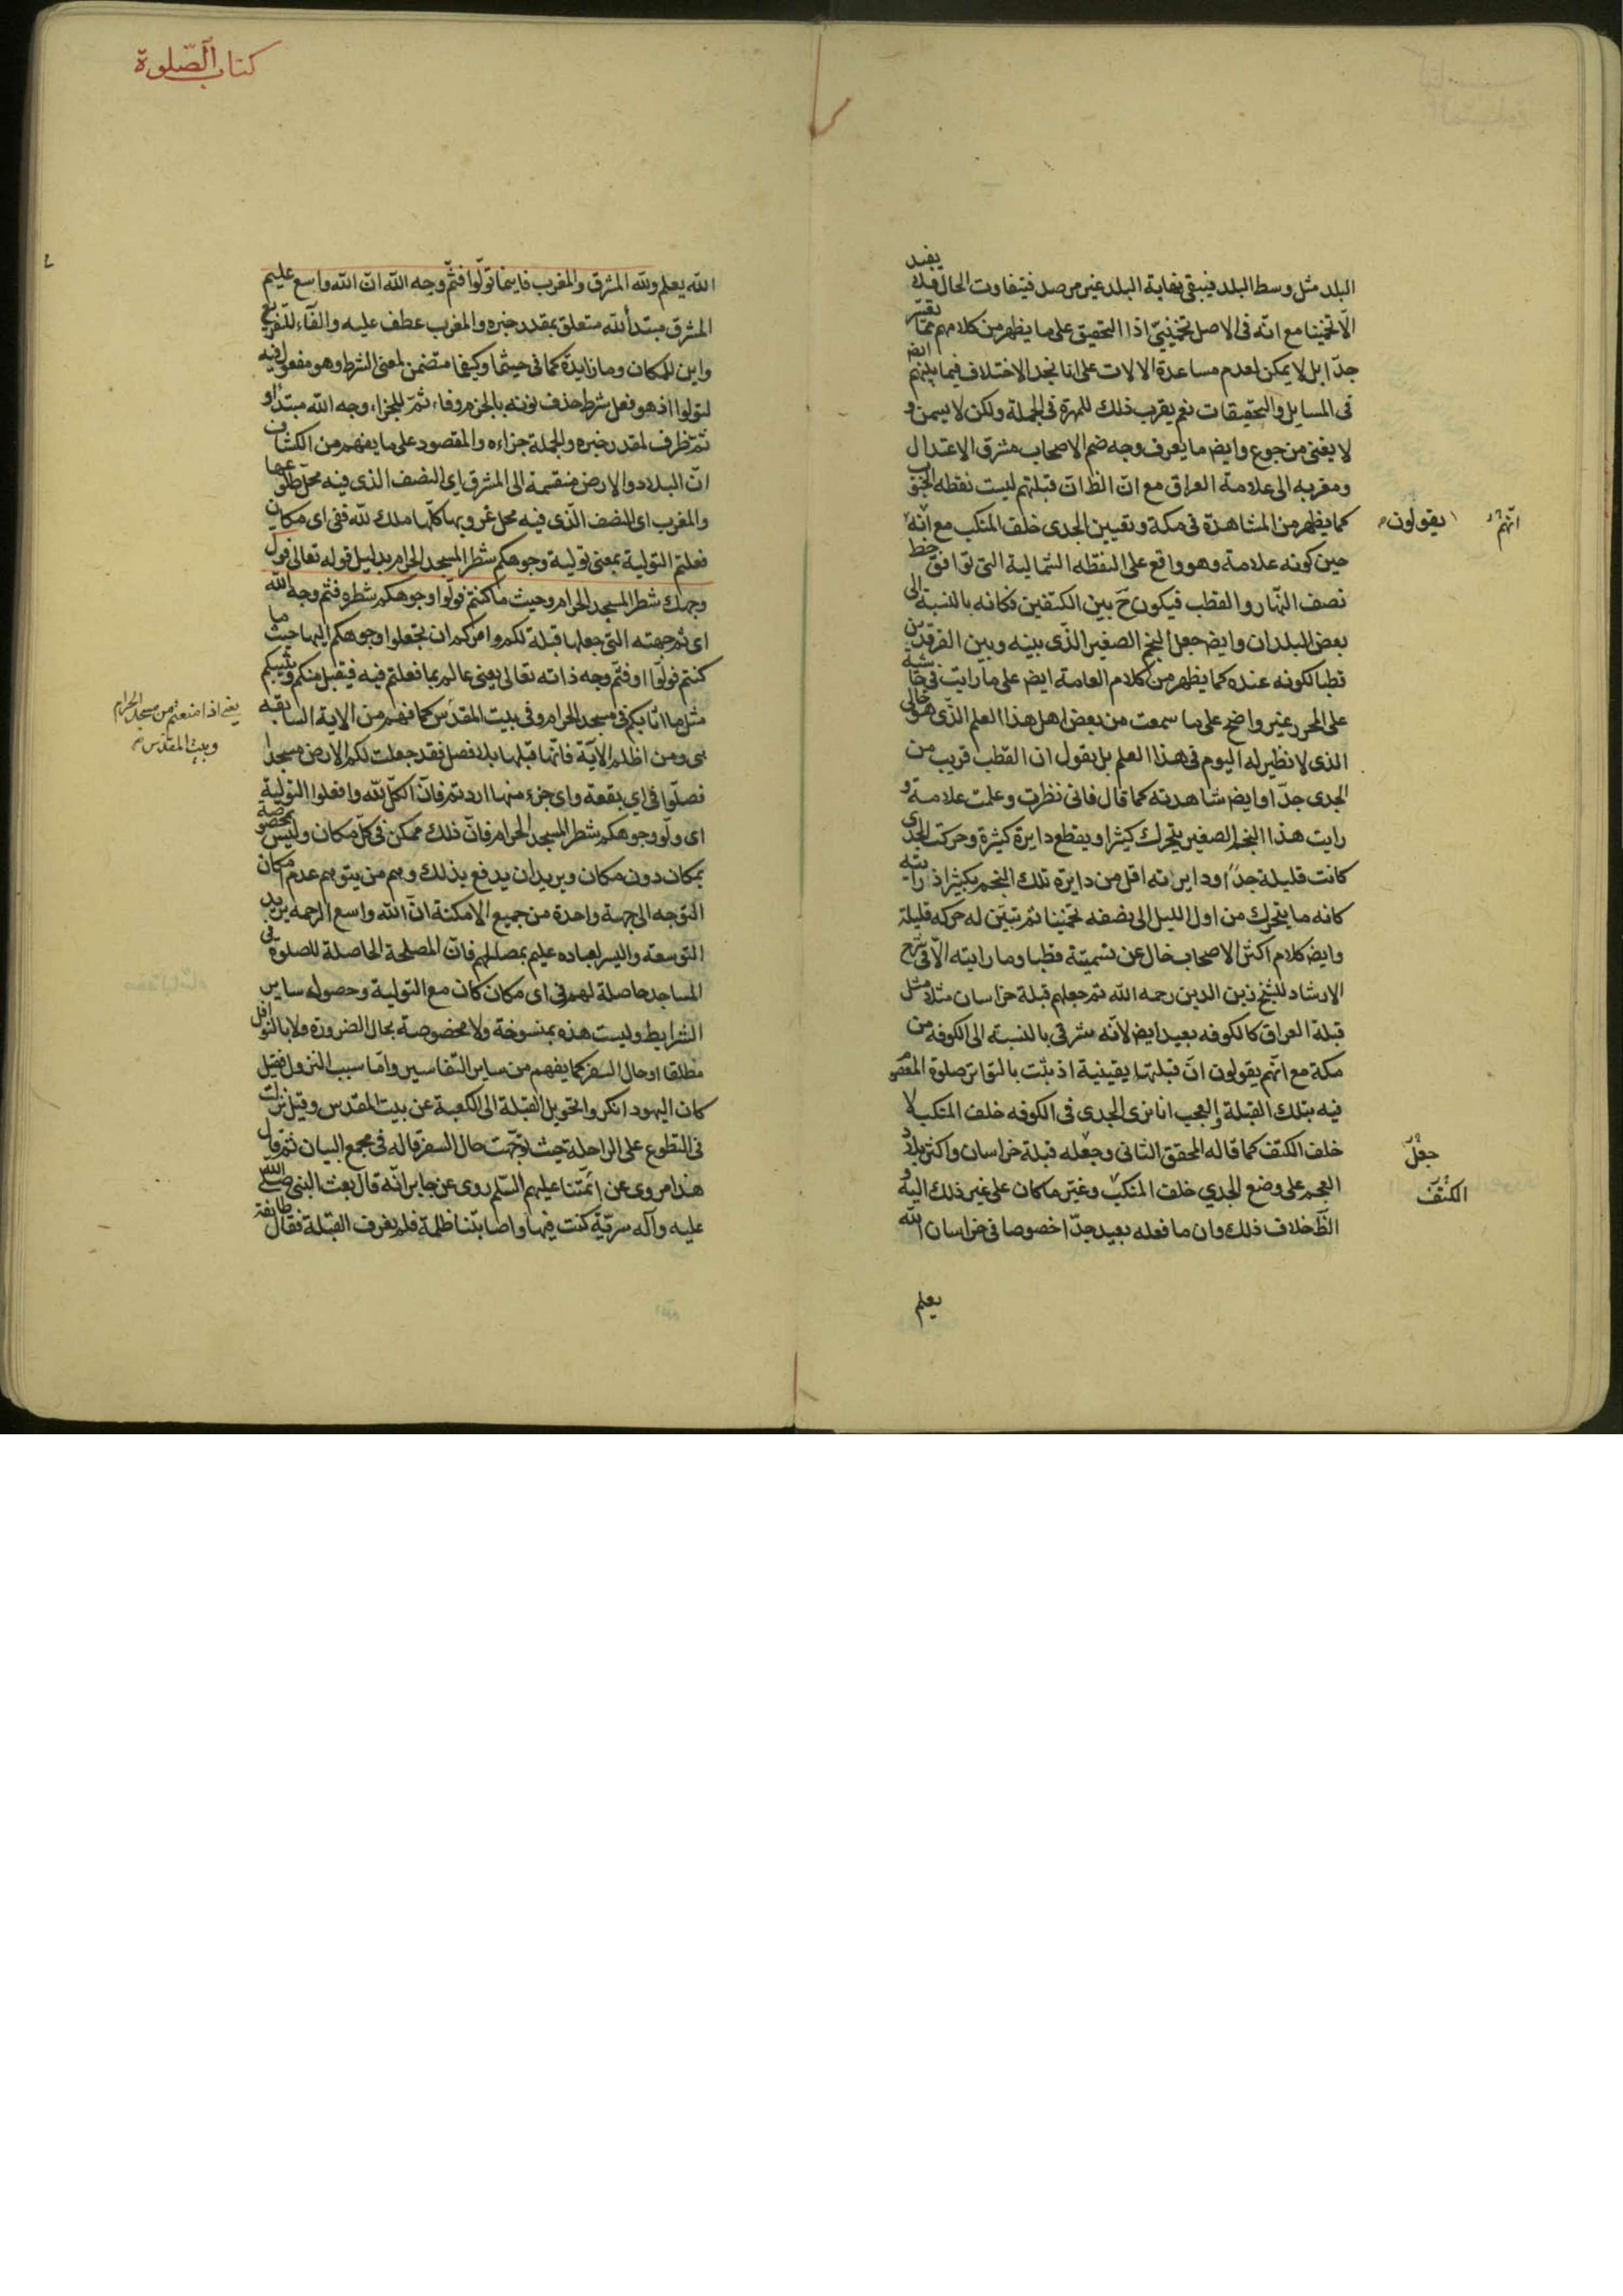 البلد مثل وسط البلد فيبقى نهاية البلد غير مرصد فيتفاوت الحال فلا يفيد
الّا تخمينا مع انّه فى الاصل تخمينىّ اذا التحقيق على ما يظهر من كلامهم ممّا تعسّر
جدّا بل لا يمكن لعدم مساعدة الالات على انا نجد الاختلاف فيما بينهم ايض
فى المسايل والتحقيقات نعم يقرب ذلك للمهرة فى الجملة ولكن لا يسمن و
لا يغنى من جوع وايض ما يعرف وجه ضم الاصحاب مشرق الاعتدال
ومغربه الى علامة العراق مع انّ الظ انّ قبلتهم ليست نقطه الجنوب
كما يظهر من المشاهدة فى مكة وتعيين الجدى خلف المنكب مع انّه
انّهم
يقولون
حين كونه علامة وهو واقع على النقطه الشمالية التى توافق خط
نصف النهار والقطب فيكون ح بين الكتفين فكانه بالنسبة الى
بعض البلدان وايض جعل النجم الصغير الذّى بينه وبين الفرقدين
قطبا لكونه عنده كما يظهر من كلام العامة ايض على ما رايت فى حاشية
على الحرر غير واضح على ما سمعت من بعض اهل هذا العلم الذّى هو خالى
الذى لا نظير له اليوم فى هذا العلم بل يقول ان القطب قريب من
الجدى جدّا وايض شاهدته كما قال فانى نظرت وعلمت علامة و
رايت هذا النجم الصغير يتحرك كثيرا ويقطع دايرة كثيرة وحركت الجدى
كانت قليلة جدّا ودايرته اقل من دايرة تلك النجم بكثير اذ رايته
كانه ما يتحرك من اول الليل الى نصفه تخمينا ثم تبيّن له حركه قليلة
وايض كلام اكثر الاصحاب خال عن تسميته قطبا وما رايته الّا فى شرح
الارشاد للشيخ زين الدين رحمه الله ثم جعلهم قبلة خراسان مثلا مثل
قبلة العراق كالكوفه بعيد ايض لانّه مشرقى بالنسبة الى الكوفه من
مكة مع انّهم يقولون انّ قبلتها يقينية اذ ثبت بالتواتر صلوة المعصوم
فيه بتلك القبلة والعجب انا نرى الجدى فى الكوفه خلف المنكب لا
خلف الكتف كما قاله المحقق الثانى وجعله قبلة خراسان واكثر بلاد
جعل
العجم على وضع الجدي خلف المنكب وغيّر ما كان على غير ذلك اليه و
الكتف
الظّ خلاف ذلك وان ما فعله بعيد جدّا خصوصا فى خراسان الله
يعلم
كتاب الصّلوة
الله يعلم ولله المشرق والمغرب فاينما تولّوا فثمّ وجه الله انّ الله واسع عليم
المشرق مبتدأ لله متعلق بمقدر خبره والمغرب عطف عليه والفآء للتفريع
واين للمكان وما زايدة كما فى حيثما وكيفما متضمن لمعنى الشرط وهو مفعول فيه
لتولوا اذ هو فعل شرط حذف نونه بالجزم وفاء ثمّ للجزاء وجه الله مبتدأ و
ثمّ ظرف لمقدر خبره والجملة جزاءه والمقصود على ما يفهم من الكشاف
انّ البلاد والارض منقسمة الى المشرق اي النصف الذى فيه محلّ طلوعها
والمغرب اى النصف الّذى فيه محل غروبها كلّها ملك للّه ففى اى مكان
فعلتم التولية بمعنى تولية وجوهكم شطر المسجد الحرام بدليل قوله تعالى فول
وجهك شطر المسجد الحرام وحيث ما كنتم فولّوا وجوهكم شطره فثم وجه الله
اى ثم جهته التى جعلها قبلة لكم وامركم ان تجعلوا وجوهكم اليها حيث ما
كنتم تولّوا او فثمّ وجه ذاته تعالى يعنى عالم بما فعلتم فيه فيقبل منكم ويثيبكم
مثل ما اثابكم فى مسجد الحرام وفى بيت المقدس كما فهم من الاية السابقه
يعنى اذا منعتم من مسجد الحرام
وبيت المقدس
هى ومن اظلم الآية فانّها قبلها بلا فصل فقد جعلت لكم الارض مسجدا
فصلّوا فى اي بقعة واى جزء منها اردتم فانّ الكلّ لله وافعلوا التولية
اى ولّو وجوهكم شطر المسجد الحرام فانّ ذلك ممكن فى كلّ مكان وليس مخصوصة
بمكان دون مكان ويريد ان يدفع بذلك وهم من يتوهم عدم امكان
التوجه الى جهة واحدة من جميع الامكنة انّ الله واسع الرحمه يريد
التوسعة واليسر لعباده عليم بمصالحهم فانّ المصلحة الحاصلة للصلوة فى
المساجد حاصلة لهم فى اى مكان كان مع التولية وحصول ساير
الشرايط وليست هذه بمنسوخة ولا مخصوصة بحال الضرورة ولا بالنوافل
مطلقا او حال السفر كما يفهم من ساير التفاسير وامّا سبب النزول فقيل
كان اليهود انكروا تحويل القبلة الى الكعبة عن بيت المقدس وقيل نزلت
فى التطوع على الراحلة حيث توجّهت حال السفر قاله فى مجمع البيان ثمّ قال
هذا مروى عن ائمّتنا عليهم السّلم روى عن جابر انّه قال بعث النبى صلى الله
عليه وآله سريّة كنت فيها واصابتنا ظلمة فلم نعرف القبلة فقال طايفة